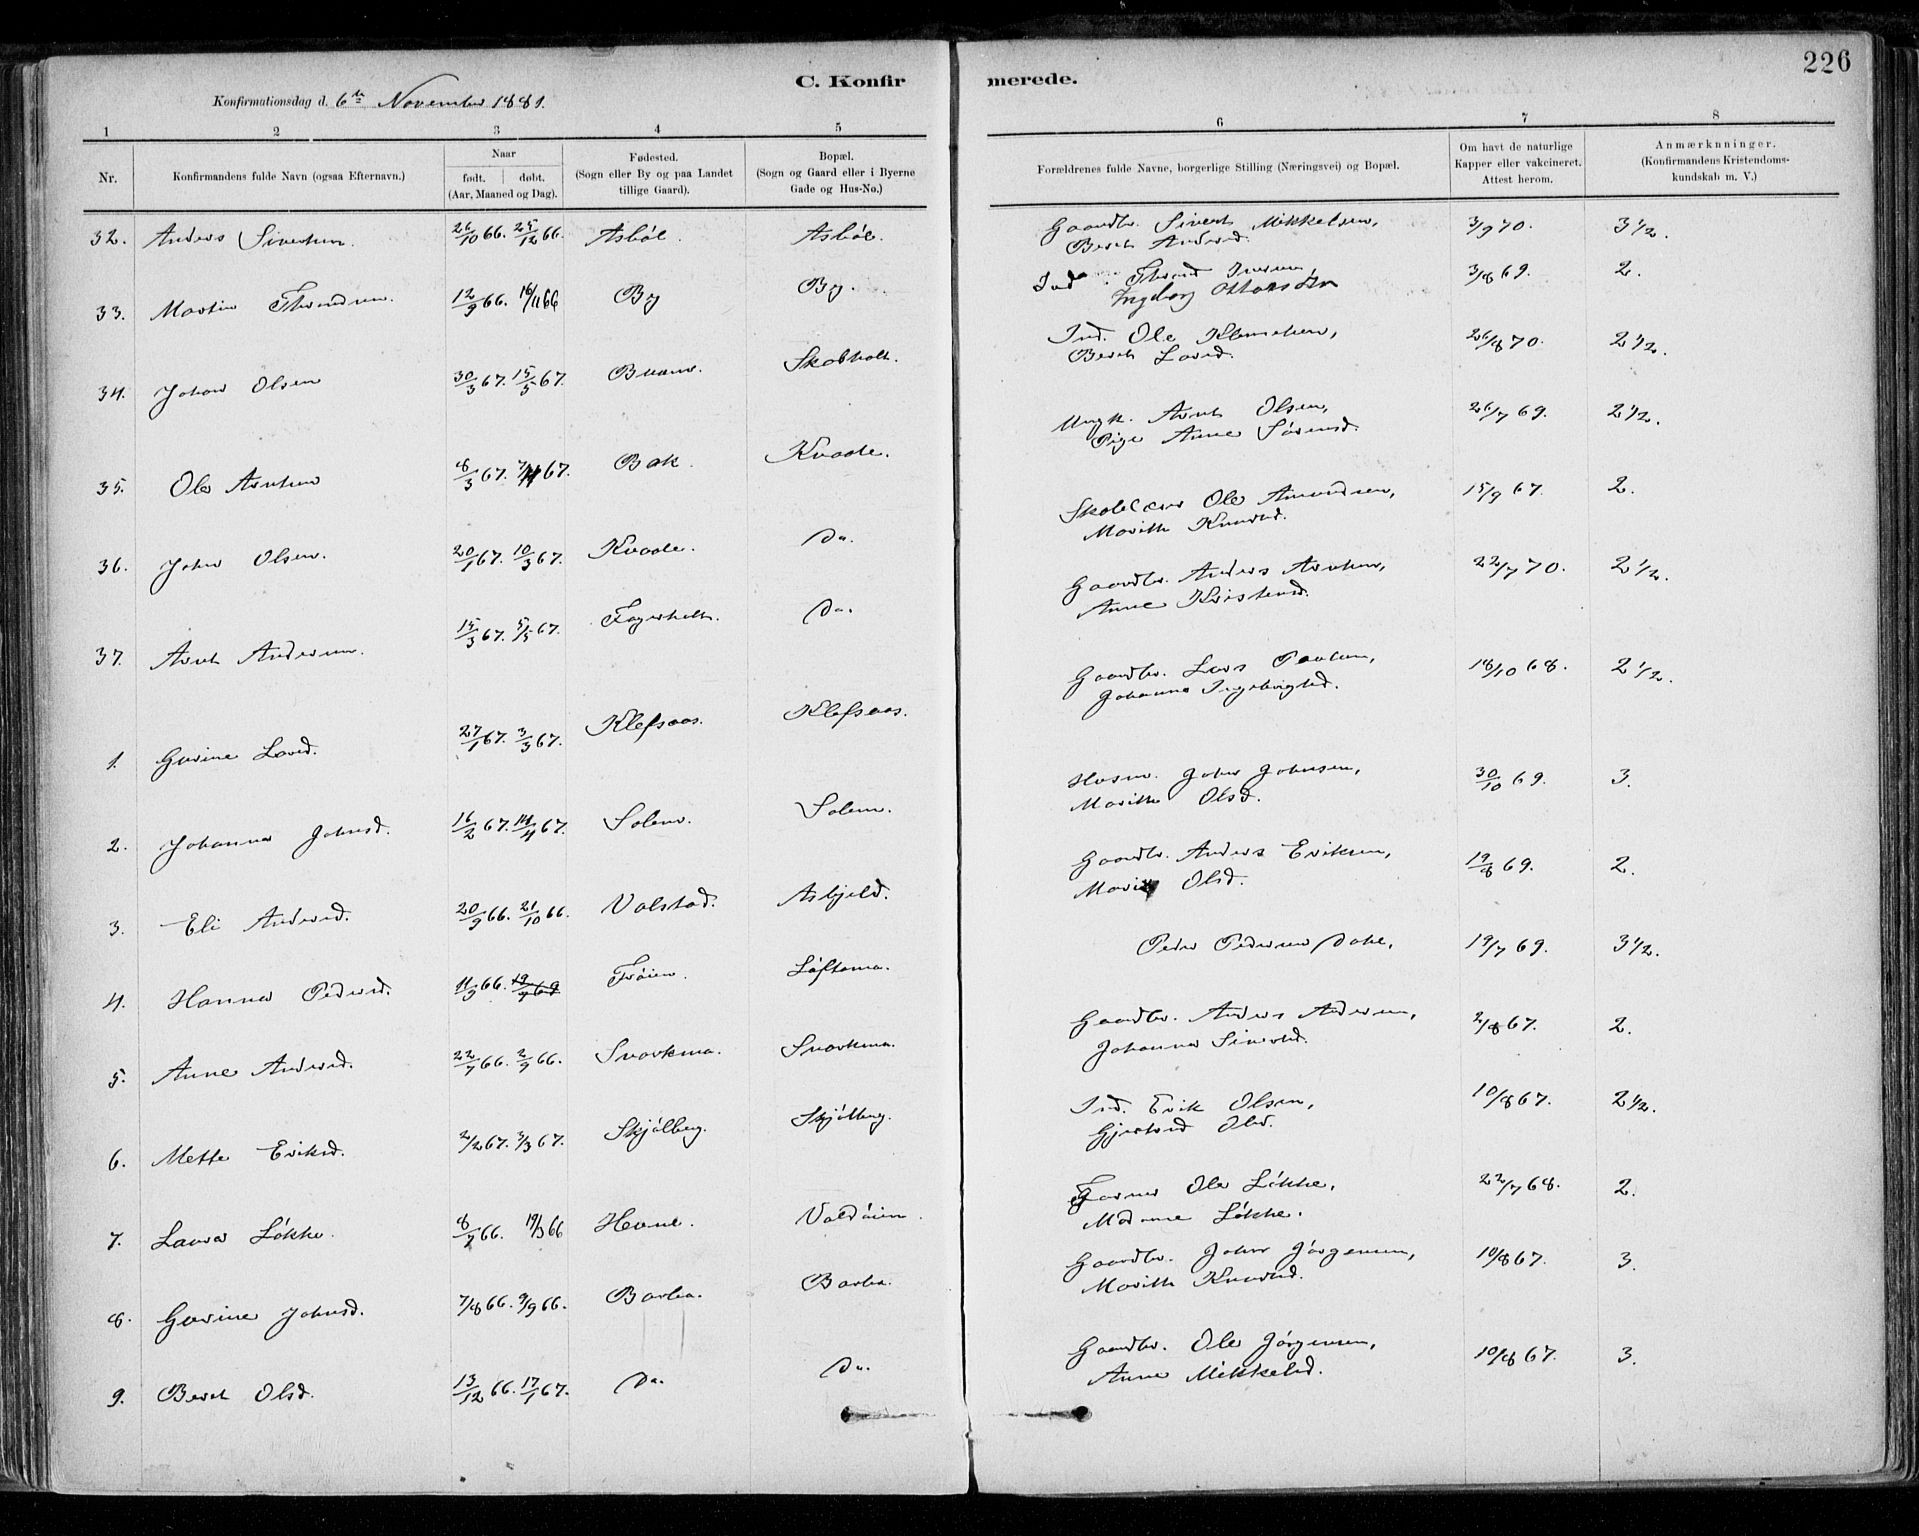 226
C. Konfirmerede.
Konfirmationsdag d. 6te November 1881.
1 2 3 4 5 6 7 8
Nr. Konfirmandens fulde Navn (ogsaa Efternavn). Naar født. døbt. (Aar, Maaned og Dag). Fødested. (Sogn eller By og paa Landet tillige Gaard). Bopæl. (Sogn og Gaard eller i Byerne Gade og Hus-No.) Forældrenes fulde Navne, borgerlige Stilling (Næringsvei) og Bopæl. Om havt de naturlige Kopper eller vakcineret. Attest herom. Anmærkninger. (Konfirmandens Kristendomskundskab m. V.)
32. Anders Sivertsen 26/10 66. 25/12 66. Asbøl. Asbøl. Gaardbr. Sivert Mikkelsen, 3/9 70. 3 1/2.
Berit Andersd.
33. Martin Throndsen. 12/9 66. 16/11 66 By By. Ind. Thrond Iversen 3/8 69. 2.
Ingeborg Ottarsdtr
34. Johan Olsen 30/3 67. 15/5 67. Skobholt. Ind. Ole Klemetsen, 26/8 70. 2 1/2.
Berit Larsd.
35. Ole Arntsen 8/3 67. 7/4 67. Bak. Kvaale. Ungk. Arnt Olsen, 26/7 69. 2 1/2.
Pige Anne Sörensd.
36. John Olsen. 20/1 67. 10/3 67. Kvaale. Do. Skolelærer Ole Amundsen, 15/9 67. 2.
Marith Knudsd.
37. Arnt Andersen 15/3 67. 5/5 67. Fagerholt. Do. Gaardbr. Anders Arntsen, 22/7 70. 2 1/2.
Anne Kristensd.
1. Gurine Larsd. 27/1 67. 3/3 67. Klefsaas. Klefsaas. Gaardbr. Lars Paulsen, 18/10 68. 2 1/2.
Johanna Ingebrigtsd.
2. Johanna Johnsd. 16/2 67. 14/4 67. Solem. Solem. Husm. John Johnsen, 30/10 69. 3.
Marith Olsd.
3. Eli Andersd. 20/9 66. 21/10 66. Valstad. Asbjeld. Gaardbr. Anders Eriksen, 19/8 69. 2.
Marit Olsd.
4. Hanna Pedersd. 11/3 66. 19/7 69 Trøien. Løftama. Peder Pedersen Dahl, 19/7 69. 3 1/2.
5. Anne Andersd. 22/7 66. 2/9 66. Snorkma. Snorkma. Gaardbr. Anders Andersen, 2/8 67. 2.
Johanna Sivertsd.
6. Mette Eriksd. 2/2 67. 3/3 67. Skjölberg. Skjölberg. Ind. Erik Olsen, 10/8 67. 2 1/2.
Gjertrud Olsd.
7. Laura Løkke. 8/7 66. 19/3 66 Hevne. Valdøien. Garver Ole Løkke, 22/7 68. 2.
Madame Løkke.
8. Gurine Johnsd. 7/8 66. 9/9 66. Barba. Barba. Gaardbr. John Jørgensen, 10/8 67. 3.
Marith Knudsd.
9. Berit Olsd. 13/12 66. 17/1 67. Do. Do. Gaardbr. Ole Jørgensen, 10/8 67. 3.
Anne Mikkelsd.